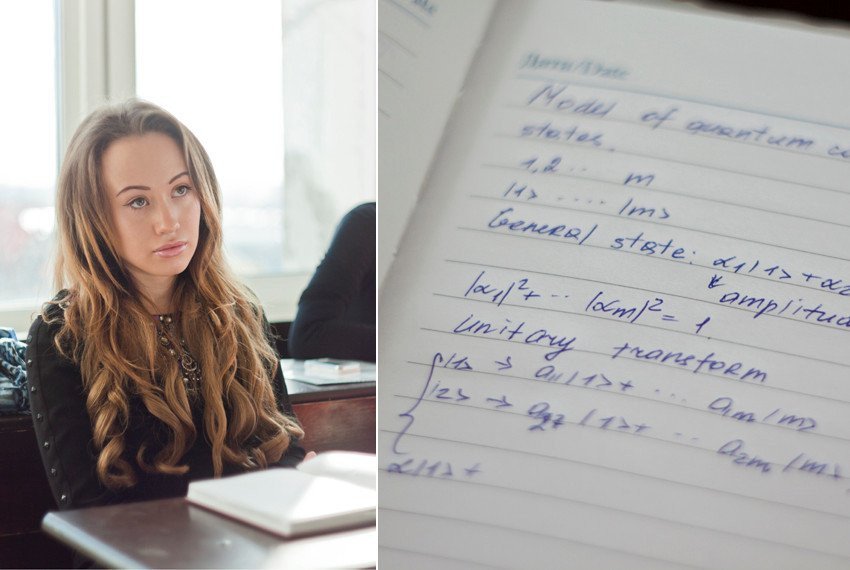 Name/Date
Model of quantum
states.
1,2 .. m
|1> ..... |m>
General state: α₁|1>+α₂
amplitud
|α₁|²+ .. |αm|² = 1
unitary transform
|1> → a₁₁|1>+ ... a₁m|m>
|2> → a₂₂|1>+ .. a₂m|m>
α|1>+